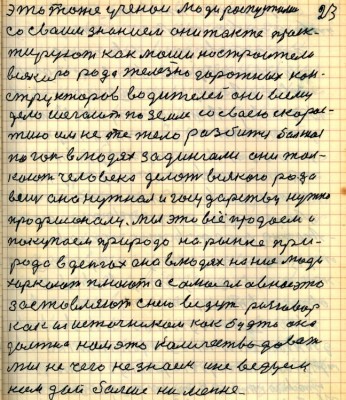 это тоже ученои люди роспустили 213
со своим знанием они так же прак-
тируют как маши ностроителе
всякого рода железно дорожных кон-
структоров водителей они всему
делу шагают по земле со своею скорос-
тию им не тяжело разбитя больная
погон в людях за дингами они тол-
кают человека делат всякого роза
вещ она нужная и государству нужно
профсионалу. Мы это всё продаем и
покупаем природа на рынке при-
рода в денгах она в людях на ние люди
харкают плюют а самое главное это
заставляют с нию ведут разговор
как и источником как будто она
должна нам это количество доват
мы не чего не знаем и не ведуем
нам дай болше ни мение.